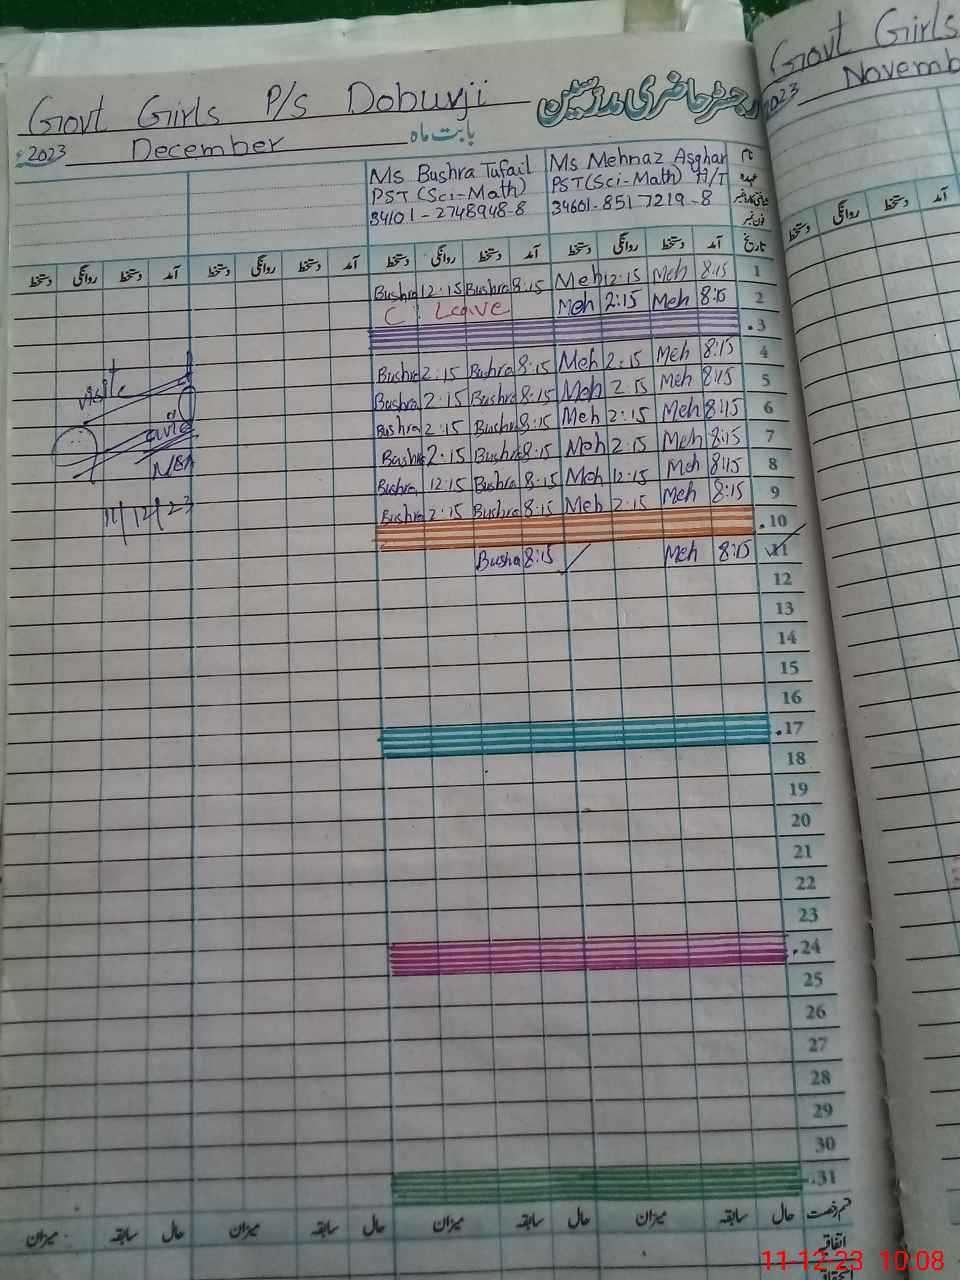 Govt Girls P/S Doburji
رجسٹر حاضری مدرسین
2023 December بابت ماہ
Ms Bushra Tufail
PST (Sci-Math)
34101-2748948-8
Ms Mehnaz Asghar
PST (Sci-Math) H/T
34601-8517219-8
نام
عہدہ
فون نمبر
تاریخ آمد دستخط روانگی دستخط آمد دستخط روانگی دستخط آمد دستخط روانگی دستخط آمد دستخط روانگی دستخط
Bushra 12:15 Bushra 8:15 Meh 12:15 Meh 8:15 1
C Leave Meh 2:15 Meh 8:15 2
.3
Bushra 2:15 Bushra 8:15 Meh 2:15 Meh 8:15 4
Bushra 2:15 Bushra 8:15 Meh 2:15 Meh 8:15 5
Bushra 2:15 Bushra 8:15 Meh 2:15 Meh 8:15 6
Bushra 2:15 Bushra 8:15 Meh 2:15 Meh 8:15 7
Bushra 12:15 Bushra 8:15 Meh 12:15 Meh 8:15 8
Bushra 2:15 Bushra 8:15 Meh 2:15 Meh 8:15 9
.10
Bushra 8:15 Meh 8:15 11
12
13
14
15
16
.17
18
19
20
21
22
23
.24
25
26
27
28
29
30
.31
قسم رخصت حال سابقہ میزان حال سابقہ میزان حال سابقہ میزان حال سابقہ میزان
اتفاقیہ
11/12/23
Govt Girls
2023
آمد دستخط روانگی دستخط
11-12-23 10:08